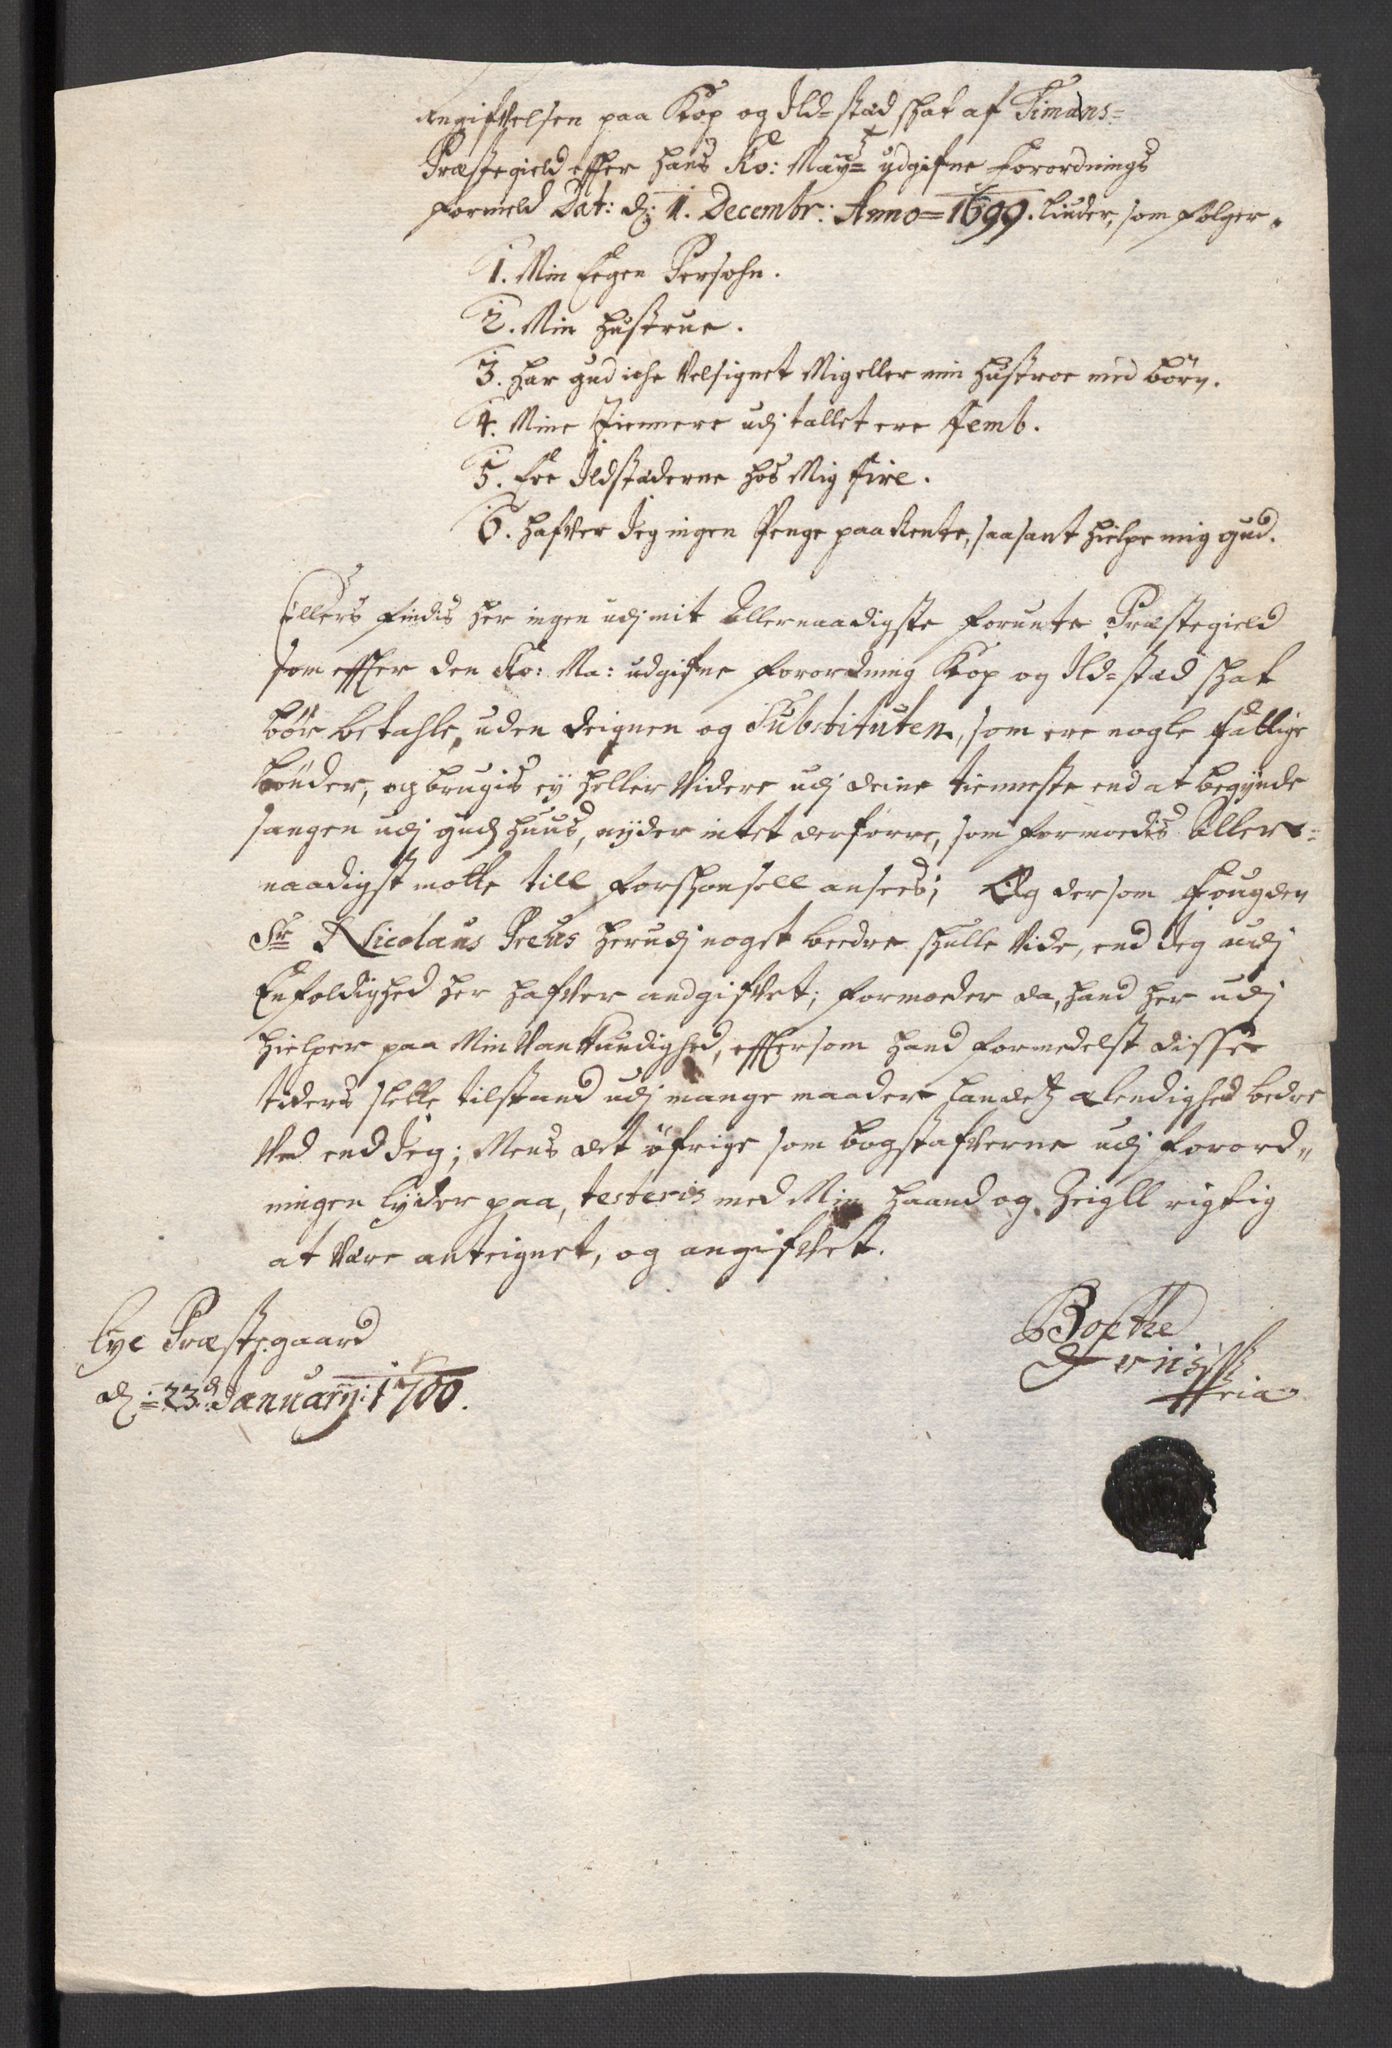 Angifvelsen paa Kop og Ild-stæd skat af Timans-
Præstegield effter hans Ko: Mayts udgifne forordnings
formeld Dat: d: 1. Decembr: Anno=1699. liuder, som følger.
1. Min Eegen Persohn.
2. Min Hüstrue.
3. har gud iche Velsignet Mig eller min hüstroe med börn.
4. Mine tiennere udj tallet ere femb.
5. Ere Ildstæderne hos Mig fire.
6. hafver Jeg ingen Penge paa Rente, saa sant hielpe mig gud.
Ellers findis her ingen udj mit Allernaadigste forunte Præstegield
som effter den Ko: Ma: udgifne forordning Kop og Ild-stæd skat
bör betahle, uden deignen og Substituten, som ere nogle fattige
bönder, og brugis ey heller Videre udj deine tienneste end at begynde
sangen udj gudz huus, nyder intet derforre, som formoedis Aller-
naadigst motte till forschonsell ansees; Og dersom Fougden
Sr Nicolaus Preüs herudj noget beedre skulle Vide, end Jeg udj
Enfoldighed her hafver andgifvet; formoeder da, hand her udj
hielper paa Min Vankundighed, efftersom hand formedelst disse
tiders slette tilstand udj mange maader landetz ælendighed bedre
Ved end Jeg; Mens det öfrige som bogstafverne udj forord-
ningen lyder paa, testeris med Min haand og Zeigll rigtig
at være anteignet, og angifvet.
Lye Præstegaard
d: 23d Januarij: 1700.
Boethe